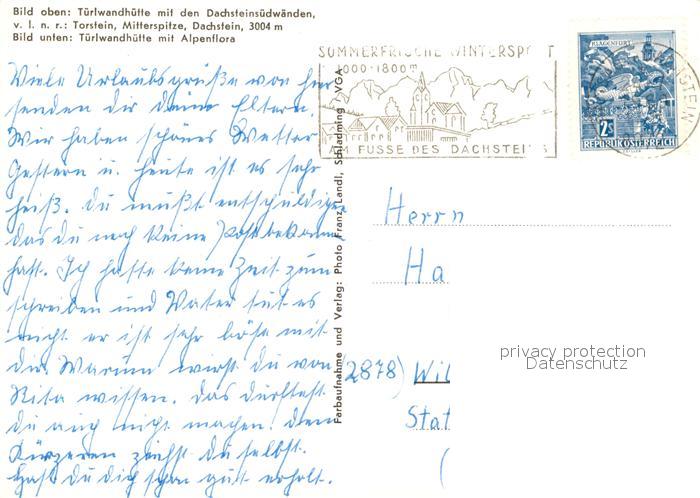 Bild oben: Türlwandhütte mit den Dachsteinsüdwänden,
v. l. n. r.: Torstein, Mitterspitze, Dachstein, 3004 m
Bild unten: Türlwandhütte mit Alpenflora
Viele Urlaubsgrüße von hier
senden dir deine Eltern.
Wir haben schönes Wetter
Gestern u. heute ist es sehr
heiß. Du mußt entschuldigen
das du noch keine Post bekommen
hast. Ich hatte keine Zeit zum
schreiben und Vater tut es
nicht er ist sehr böse mit
Dir. Warum wirst du von
Rita wissen. Das durftest
du auch nicht machen. Den
Kürzeren ziehst du selbst.
Hast du dich schon gut erholt.
Farbaufnahme und Verlag: Photo Franz Landl, Schladming VGA
SOMMERFRISCHE WINTERSPORT
1000-1800 m
AM FUSSE DES DACHSTEINS
KLAGENFURT
2S
REPUBLIK ÖSTERREICH
Herrn
Ha
(2878) Wil
Stat
(
privacy protection
Datenschutz